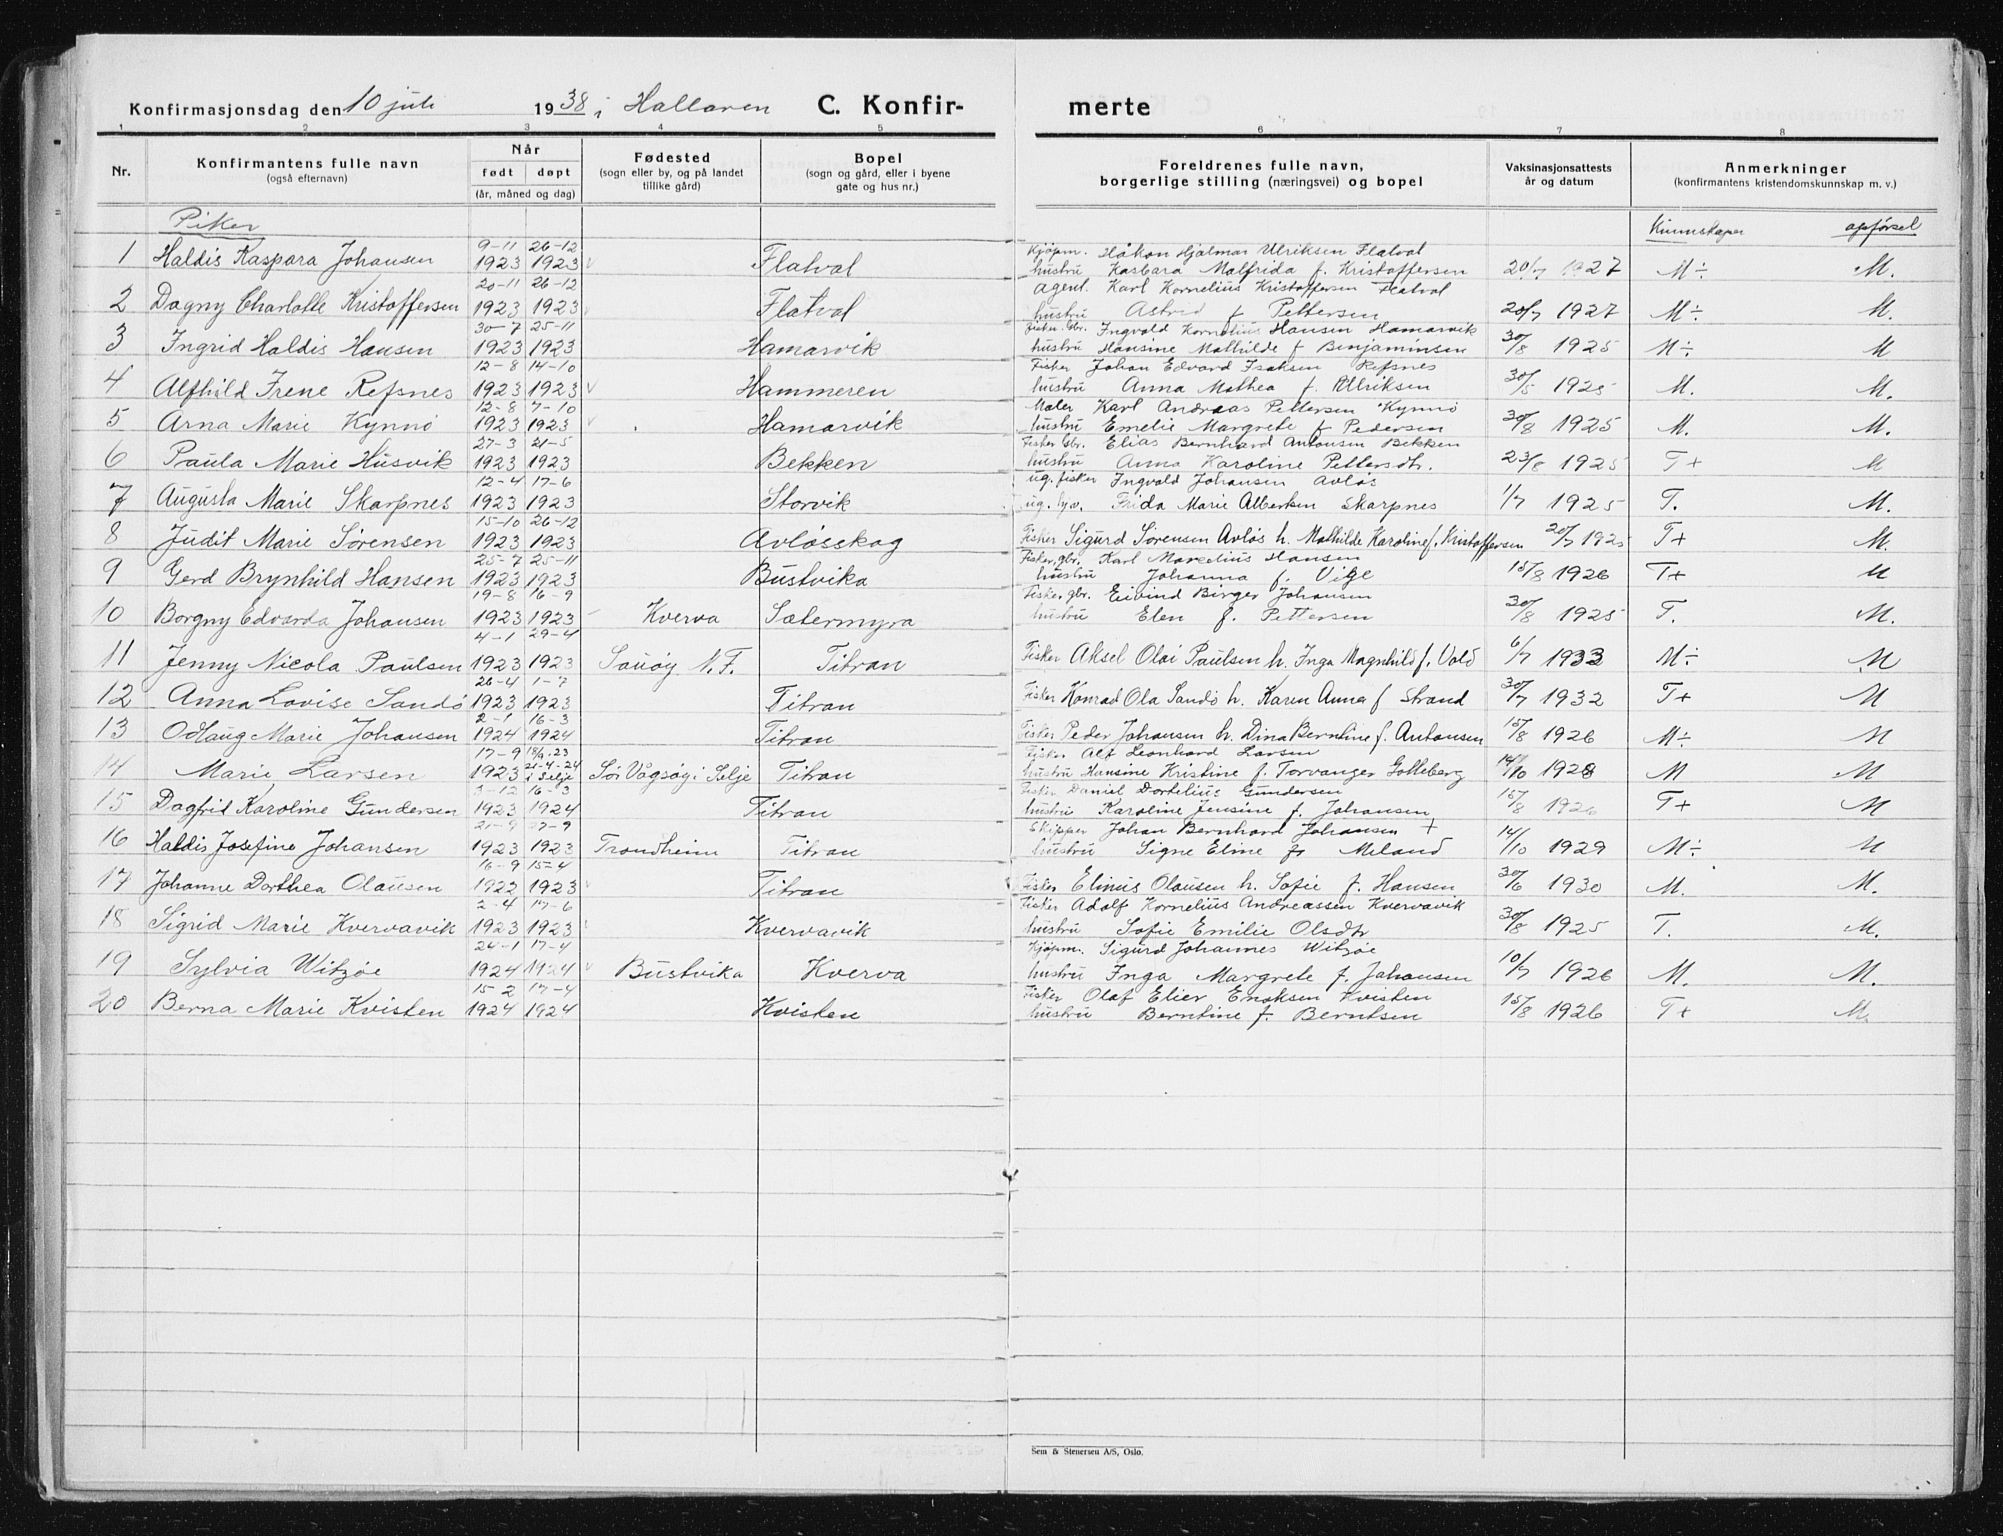 Konfirmasjonsdag den 10 juli 1938 i Hallaren C. Konfirmerte
1 2 3 4 5 6 7 8
Nr. Konfirmantens fulle navn (også efternavn) Når født døpt (år, måned og dag) Fødested (sogn eller by, og på landet tillike gård) Bopel (sogn og gård, eller i byene gate og hus nr.) Foreldrenes fulle navn, borgerlige stilling (næringsvei) og bopel Vaksinasjonsattests år og datum Anmerkninger (konfirmantens kristendomskunnskap m. v.)
Piker Kunnskaper opførsel
1 Haldis Kaspara Johansen 9-11 1923 26-12 1923 Flatval Kjøpm. Håkon Hjalmar Ulriksen Flatval hustru Kasbara Malfrida f. Kristoffersen 20/7 1927 M÷ M.
2 Dagny Charlotte Kristoffersen 20-11 1923 26-12 1923 Flatval Agent. Karl Kornelius Kristoffersen Flatval hustru Astrid f Pettersen 20/7 1927 M÷ M.
3 Ingrid Haldis Hansen 30-7 1923 25-11 1923 Hamarvik Fisker, gbr. Ingvald Kornelius Hansen Hamarvik hustru Hansine Mathilde f Benjaminsen 30/8 1925 M÷ M
4 Alfhild Irene Refsnes 12-8 1923 14-10 1923 Hammeren Fisker Johan Edvard Isaksen Refsnes hustru Anna Mathea f. Ulriksen 30/5 1925 M. M.
5 Arna Marie Kynnø 12-8 1923 7-10 1923 Hamarvik Maler Karl Andreas Pettersen Kynnø hustru Emelie Margrete f Pedersen 30/8 1925 M. M.
6 Paula Marie Husvik 27-3 1923 21-5 1923 Bekken Fisker Gbr. Elias Bernhard Antonsen Bekken hustru Anna Karoline Pettersdtr. 23/8 1925 T+ M
7 Augusta Marie Skarpnes 12-4 1923 17-6 1923 Storvik ug. fisker Ingvald Johansen Avløs ug. Frida Marie Albertsen Skarpnes 1/7 1925 T. M.
8 Judit Marie Sørensen 15-10 1923 26-12 1923 Avløsskag Fisker Sigurd Sørensen Avløs h. Mathilde Karoline f. Kristoffersen 20/7 1925 T+ M.
9 Gerd Brynhild Hansen 25-7 1923 25-11 1923 Bustvika Fisker, gbr. Karl Marcelius Hansen hustru Johanna f. Vige 15/8 1926 T+ M
10 Borgny Edvarda Johansen 19-8 1923 16-9 1923 Kverva Sætermyra Fisker, gbr. Eivind Birger Johansen hustru Elen f. Pettersen 30/8 1925 T. M.
11 Jenny Nicola Paulsen 4-1 1923 29-4 1923 Sauøy N.F. Titran Fisker Aksel Olai Paulsen h. Inga Magnhild f. Vold 6/7 1933 M÷ M
12 Anna Lovise Sandø 26-4 1923 1-7 1923 Titran Fisker Konrad Ola Sandø h. Karen Anna f Strand 30/7 1932 T+ M
13 Odlaug Marie Johansen 2-1 1924 16-3 1924 Titran Fisker Peder Johansen h. Dina Berntine f. Antonsen 15/8 1926 M÷ M
14 Marie Larsen 17-9 1923 18/9.23 21-4-24 i Selje Sør Vågsøy i Selje Titran Fisker Alf Leonhard Larsen hustru Hansine Kristine f. Torvanger Golleberg 14/10 1928 M M
15 Dagfrid Karoline Gundersen 3-12 1923 16-3 1924 Titran Fisker Daniel Dortelius Gundersen hustru Karoline Jensine f. Johansen 15/8 1926 T+ M
16 Haldis Josefine Johansen 21-9 1923 27-9 1923 Trondheim Titran Skipper Johan Bernhard Johansen + hustru Signe Eline f. Meland 14/10 1929 M÷ M
17 Johanne Dorthea Olausen 16-9 1922 15-4 1923 Titran Fisker Elinus Olausen h. Sofie f. Hansen 30/6 1930 M. M.
18 Sigrid Marie Kvervavik 2-4 1923 17-6 1923 Kvervavik Fisker Adolf Kornelius Andreassen Kvervavik hustru Sofie Emilie Olsdtr 30/8 1925 T. M.
19 Sylvia Witzøe 24-1 1924 17-4 1924 Bustvika Kverva Kjøpm. Sigurd Johannes Witzøe hustru Inga Margrete f. Johansen 10/7 1926 M. M.
20 Berna Marie Kvisten 15-2 1924 17-4 1924 Kvisten Fisker Olaf Elier Enoksen Kvisten hustru Berntine f. Berntsen 15/8 1926 T+ M.
Sem & Stenersen A/S, Oslo.